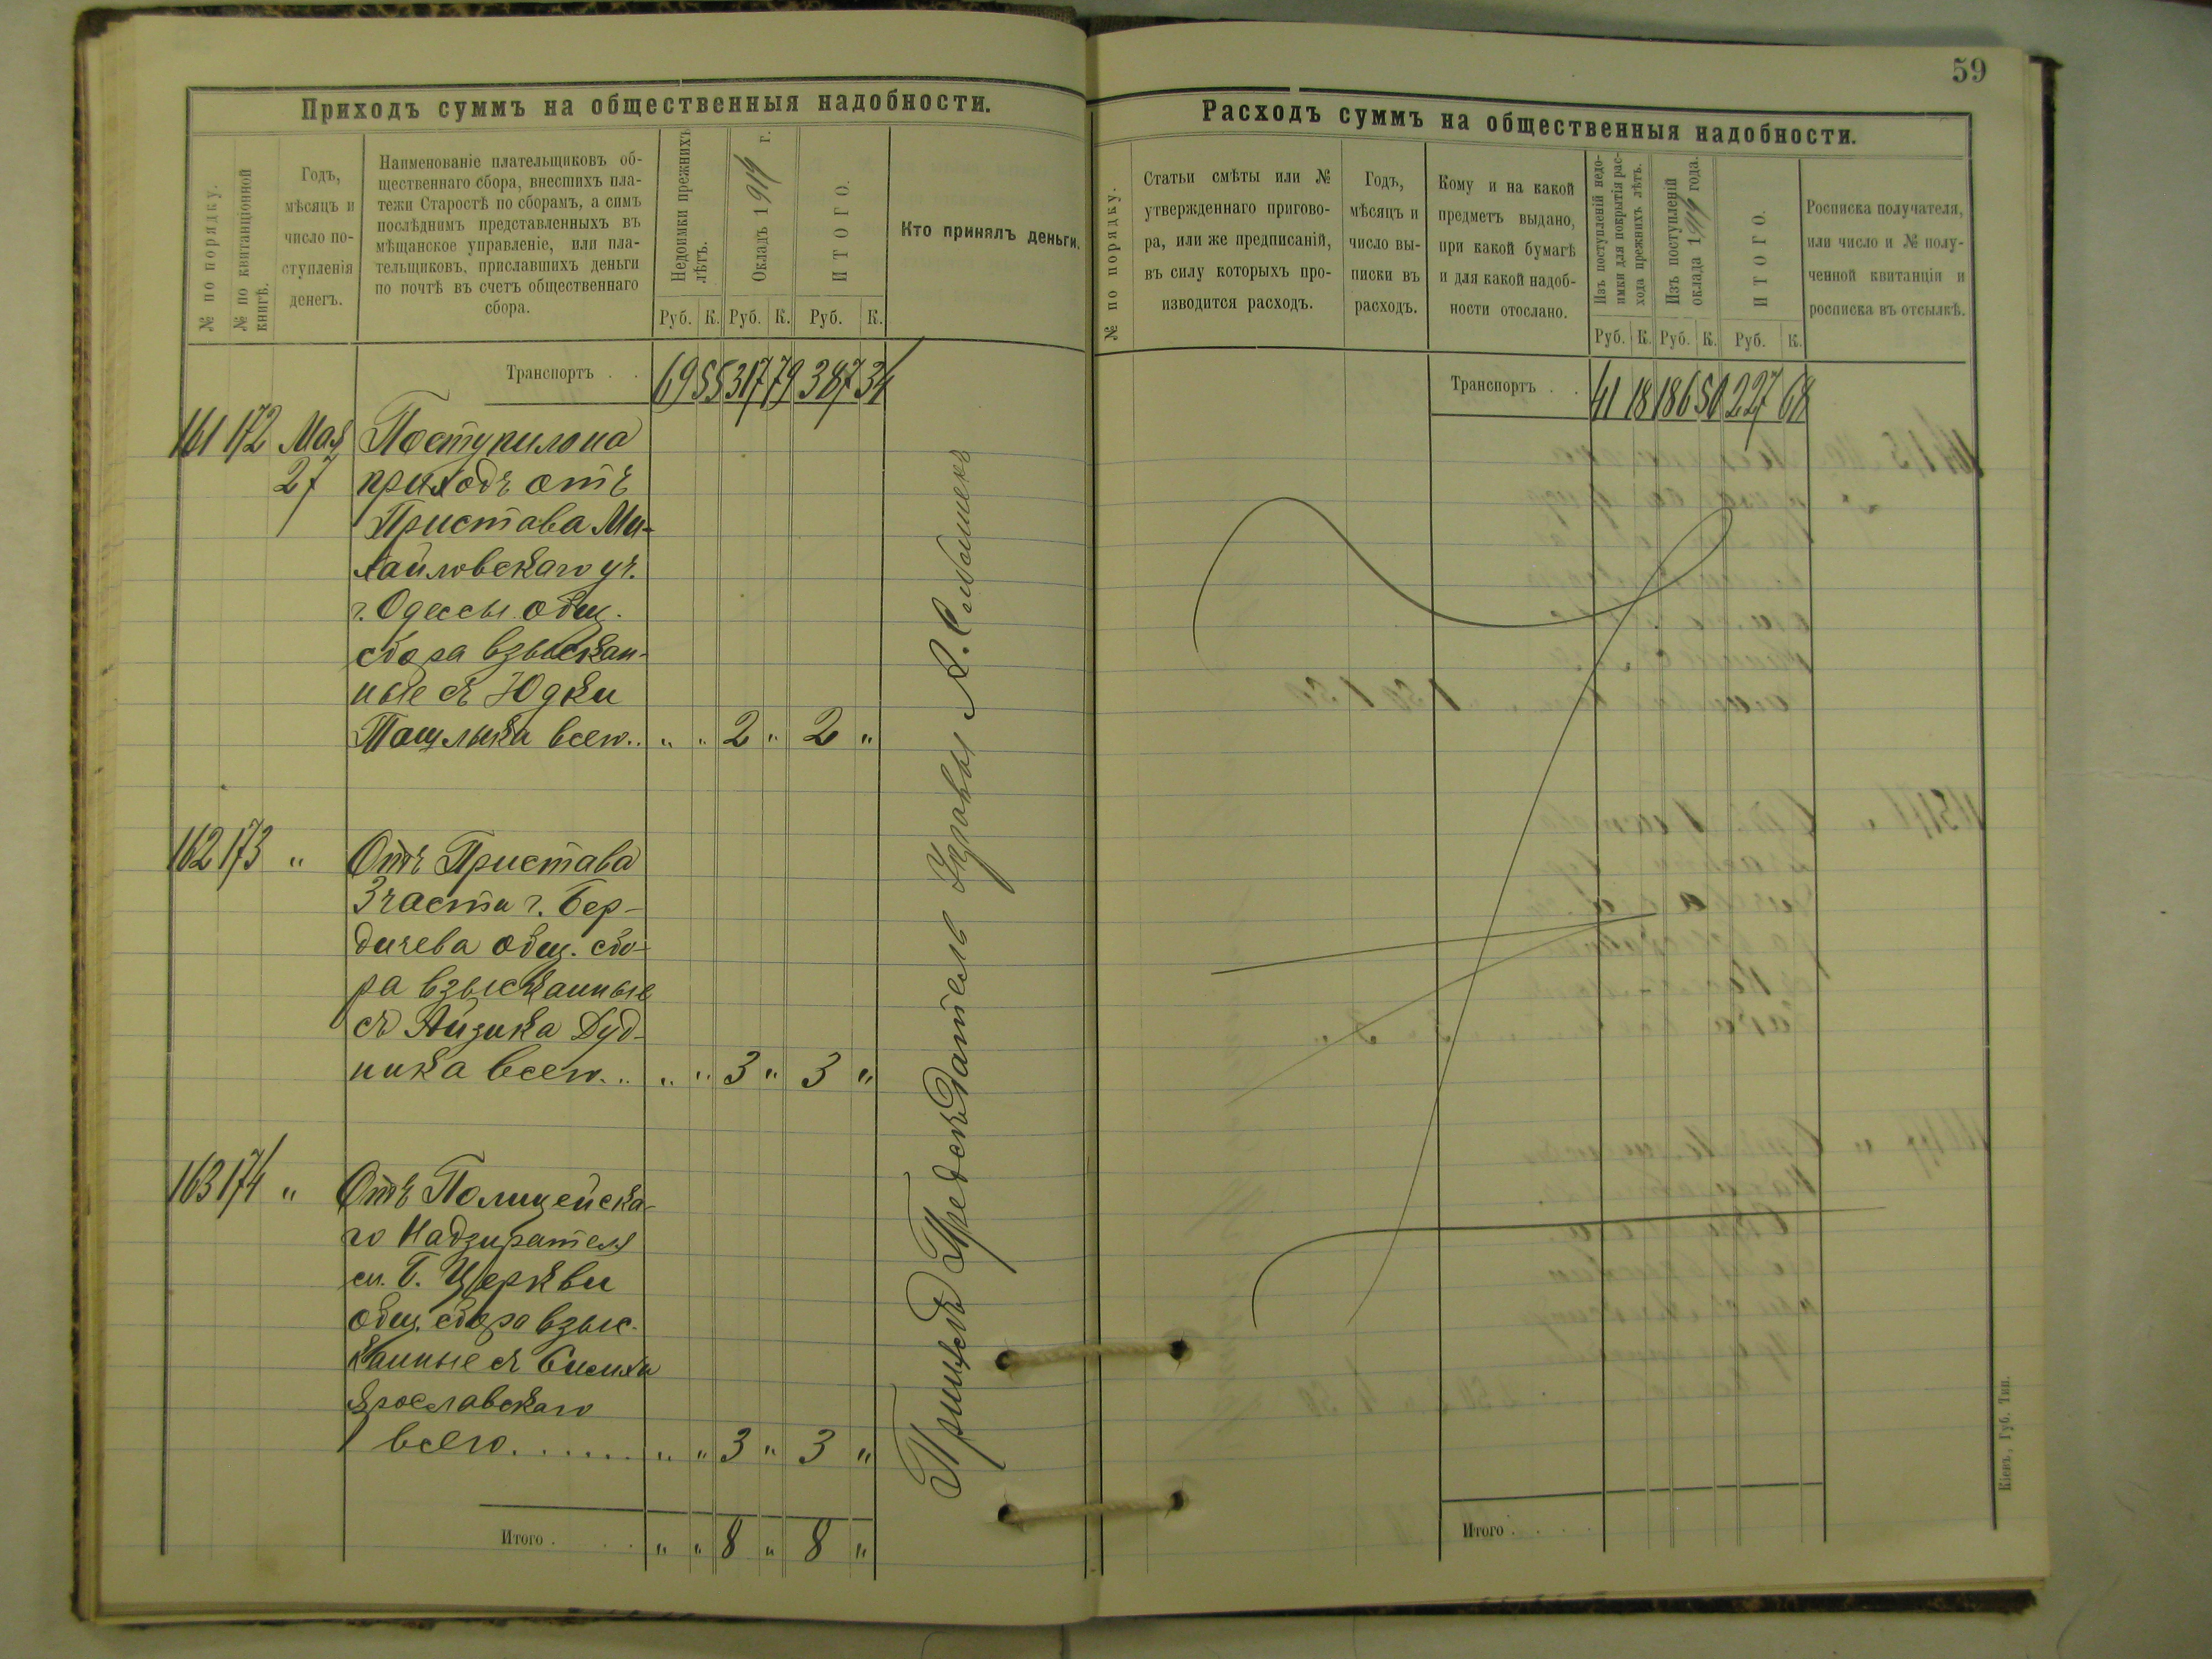 Приходъ суммъ на общественныя надобности.
№ по порядку.
№ по квитанціонной
книгѣ.
Годъ,
мѣсяцъ и
число по-
ступленія
денегъ.
Наименованіе плательщиковъ об-
щественнаго сбора, внесшихъ пла-
тежи Старостѣ по сборамъ, а симъ
послѣднимъ представленныхъ въ
мѣщанское управленіе, или пла-
тельщиковъ, приславшихъ деньги
по почтѣ въ счетъ общественнаго
сбора.
Недоимки прежнихъ
лѣтъ.
Окладъ 1914 г.
ИТОГО.
Кто принялъ деньги.
Руб. К. Руб. К. Руб. К.
Транспортъ . . 69 55 317 79 387 34
161 172 Мая Поступило на
27 приходъ отъ
Пристава Ми-
хайловскаго уч.
г. Одессы общ.
сбора взыскан-
ные съ Юдки
Тащлыка всего.. " " 2 " 2 "
162 173 " Отъ Пристава
3 части г. Бер-
дичева общ. сбо-
ра взысканные
съ Айзика Дуд-
ника всего... " " 3 " 3 "
163 174 " Отъ Полицейска-
го Надзирателя
м. Б. Церкви
общ. сбора взыс-
канные съ Симхи
Ярославскаго
всего...... " " 3 " 3 "
Итого . . . " " 8 " 8 "
Предсѣдатель Управы
59
Расходъ суммъ на общественныя надобности.
№ по порядку.
Статьи смѣты или №
утвержденнаго пригово-
ра, или же предписаній,
въ силу которыхъ про-
изводится расходъ.
Годъ,
мѣсяцъ и
число вы-
писки въ
расходъ.
Кому и на какой
предметъ выдано,
при какой бумагѣ
и для какой надоб-
ности отослано.
Изъ поступленій недо-
имки для покрытія рас-
хода прежнихъ лѣтъ.
Изъ поступленій
оклада 1914 года.
ИТОГО.
Росписка получателя,
или число и № полу-
ченной квитанціи и
росписка въ отсылкѣ.
Руб. К. Руб. К. Руб. К.
Транспортъ . . 41 18 186 50 227 68
Итого . . . .
Кіевъ, Губ. Тип.